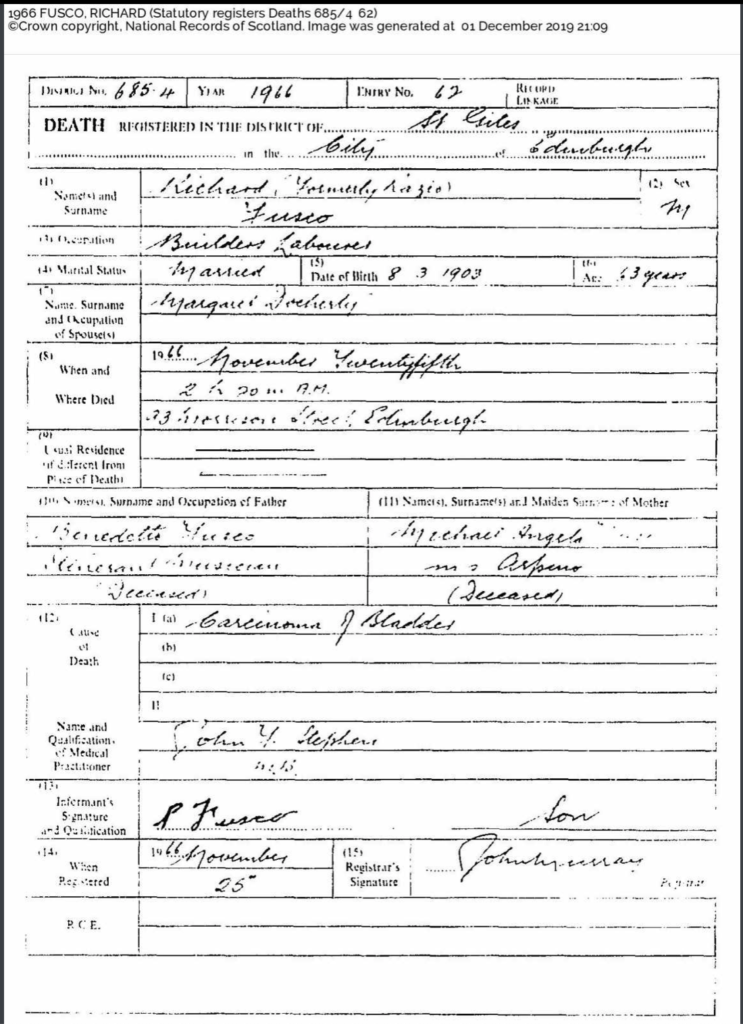 1966 FUSCO, RICHARD (Statutory registers Deaths 685/4 62)
©Crown copyright, National Records of Scotland. Image was generated at 01 December 2019 21:09
DISTRICT No. 685-4 YEAR 1966 ENTRY No. 62 RECORD LINKAGE
DEATH REGISTERED IN THE DISTRICT OF St Giles
in the City of Edinburgh
(1) Name(s) and Surname Richard (Formerly Orazio) Fusco
(2) Sex M
(3) Occupation Builders Labourer
(4) Marital Status Married (5) Date of Birth 8 3 1903 (6) Age 63 years
(7) Name, Surname and Occupation of Spouse(s) Margaret Docherty
(8) When and Where Died 1966 November Twentyfifth
2 h 20 m A.M.
33 Morrison Street, Edinburgh
(9) Usual Residence (if different from Place of Death)
(10) Name(s), Surname and Occupation of Father (11) Name(s), Surname(s) and Maiden Surname of Mother
Benedetto Fusco Michael Angela
Itinerant Musician m s Arpino
(Deceased) (Deceased)
(12) Cause of Death I (a) Carcinoma of Bladder
(b)
(c)
II
Name and Qualifications of Medical Practitioner John Y. Stephen
M.B.
(13) Informant's Signature and Qualification R Fusco Son
(14) When Registered 1966 November 25 (15) Registrar's Signature John Murray
Registrar
R.C.E.